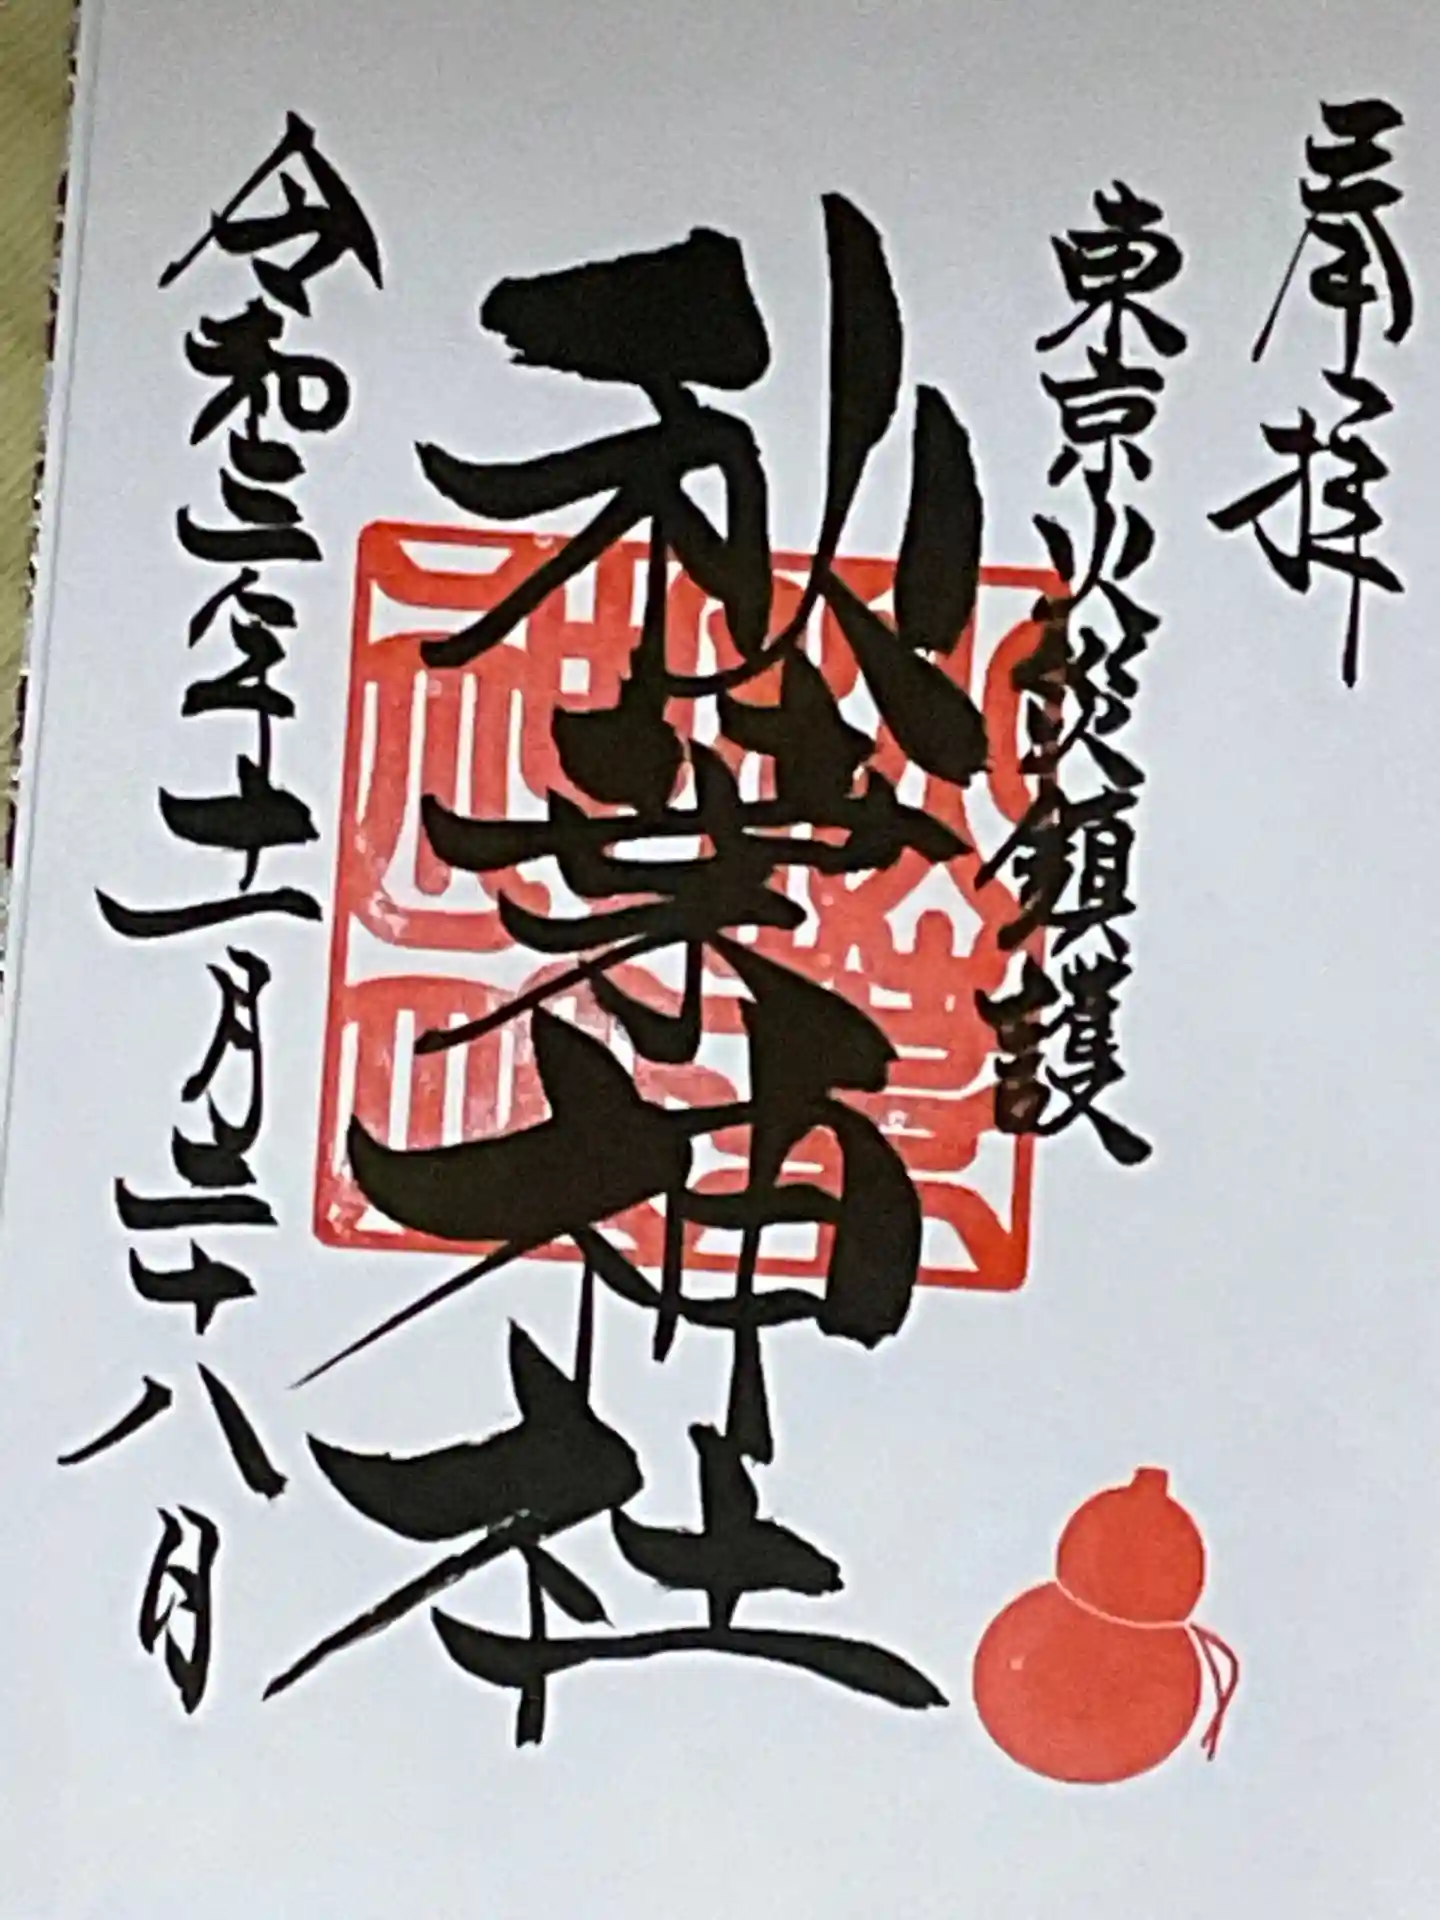 奉拝
東京火災鎮護
秋葉神社
令和三年十一月二十八日